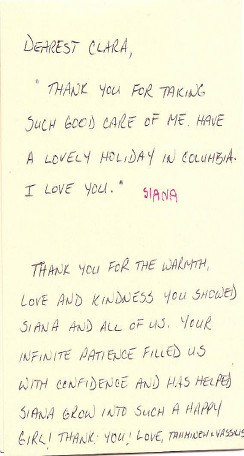 DEAREST CLARA,
" THANK YOU FOR TAKING
SUCH GOOD CARE OF ME. HAVE
A LOVELY HOLIDAY IN COLUMBIA.
I LOVE YOU." SIANA
THANK YOU FOR THE WARMTH,
LOVE AND KINDNESS YOU SHOWED
SIANA AND ALL OF US. YOUR
INFINITE PATIENCE FILLED US
WITH CONFIDENCE AND HAS HELPED
SIANA GROW INTO SUCH A HAPPY
GIRL! THANK YOU! LOVE, TAHMINEH & VASSILIS